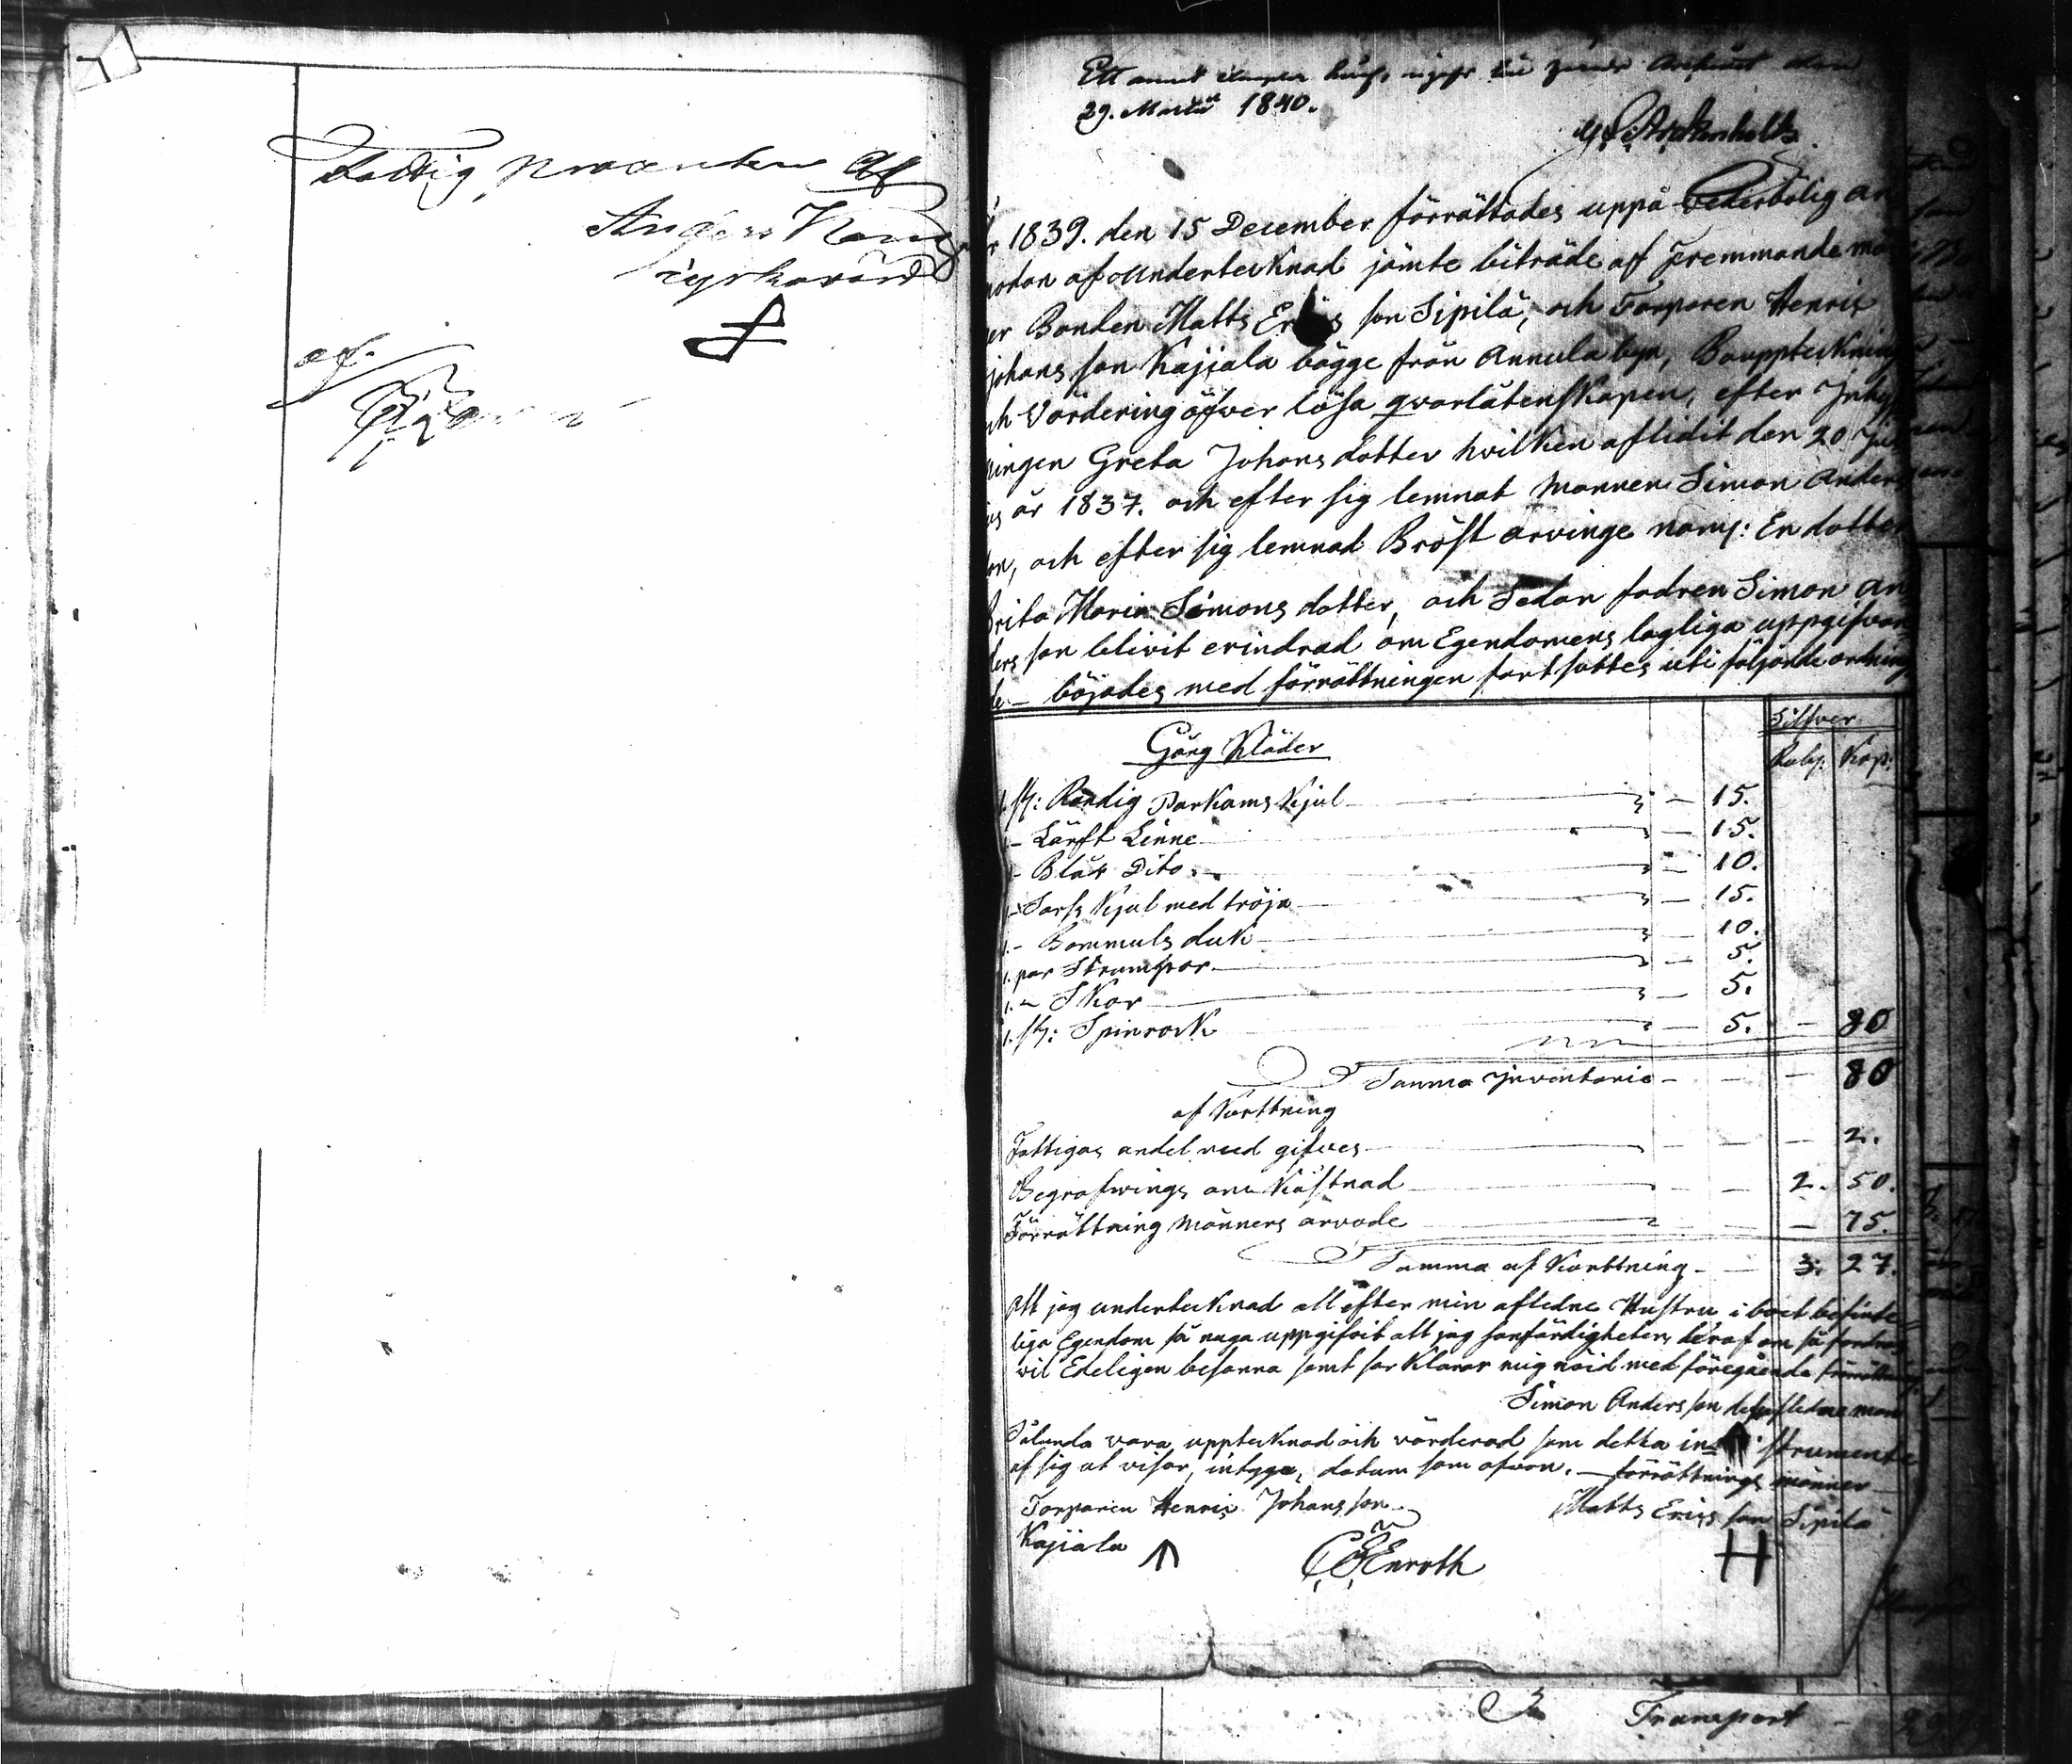 Fattig procenten
Anders
kyrkovärd
af.
Ett
29. Martii 1840.
Arckenholtz
1839. den 15 December förrättades uppå Wederbölig an
modan af undertecknad jämte biträde af Fremmande män
Bonden Matts Erics son Sipilä, och Torparen Henric
Johans son Kajiala bägge från Annula byn, Bouppteckning
och Värdering öfver lösa qvarlåtenskapen, efter Inhys
ningen Greta Johans dotter hvilken aflidit den 20
år 1837. och efter sig lemnat Mannen Simon Anders
son, och efter sig lemnad Bröst arvinge namj: En dotter
Brita Maria Simons dotter, och Sedan fadren Simon An
ders son blivit erindrad om Egendomens lagliga uppgifvan
de – böjades med förrättningen fortsattes uti följande ordning
Silfver
Gång Kläder Rub: Kop:
1. st: Randig Parkams Kjol 15.
1 – Lärft Linne 15.
1 – Blår Dito 10.
1 – Sarss Kjol med tröja 15.
1. – Bommuls duk 10.
1. par Strumpor 5.
1. – Skor 5.
1. st: Spinrock 5. – 80
Summa Inventarie – – – 80
af Kortning
Fattigas andel med gifves – – 2.
Begrafwings om Kåstnad 2. 50.
Förrättning Männers arvode – 75.
Summa af Kortning – 3. 27.
Att jag undertecknad all efter min afledne Hustru i boet befinte
liga Egendom så noga uppgifvit att jag sanfärdigheten deraf om så fordras
vil Edeligen besanna samt för Klarar mig nöid med föregående förrättning
Simon Anders son aflednes man
Sålunda vara upptecknad och värderad som detta in strumente
af sig at visar, intyga, datum som ofvan. – förrättnings männer
Torparen Henric Johans son Matts Erics son Sipilä
Kajiala Enroth
Transport